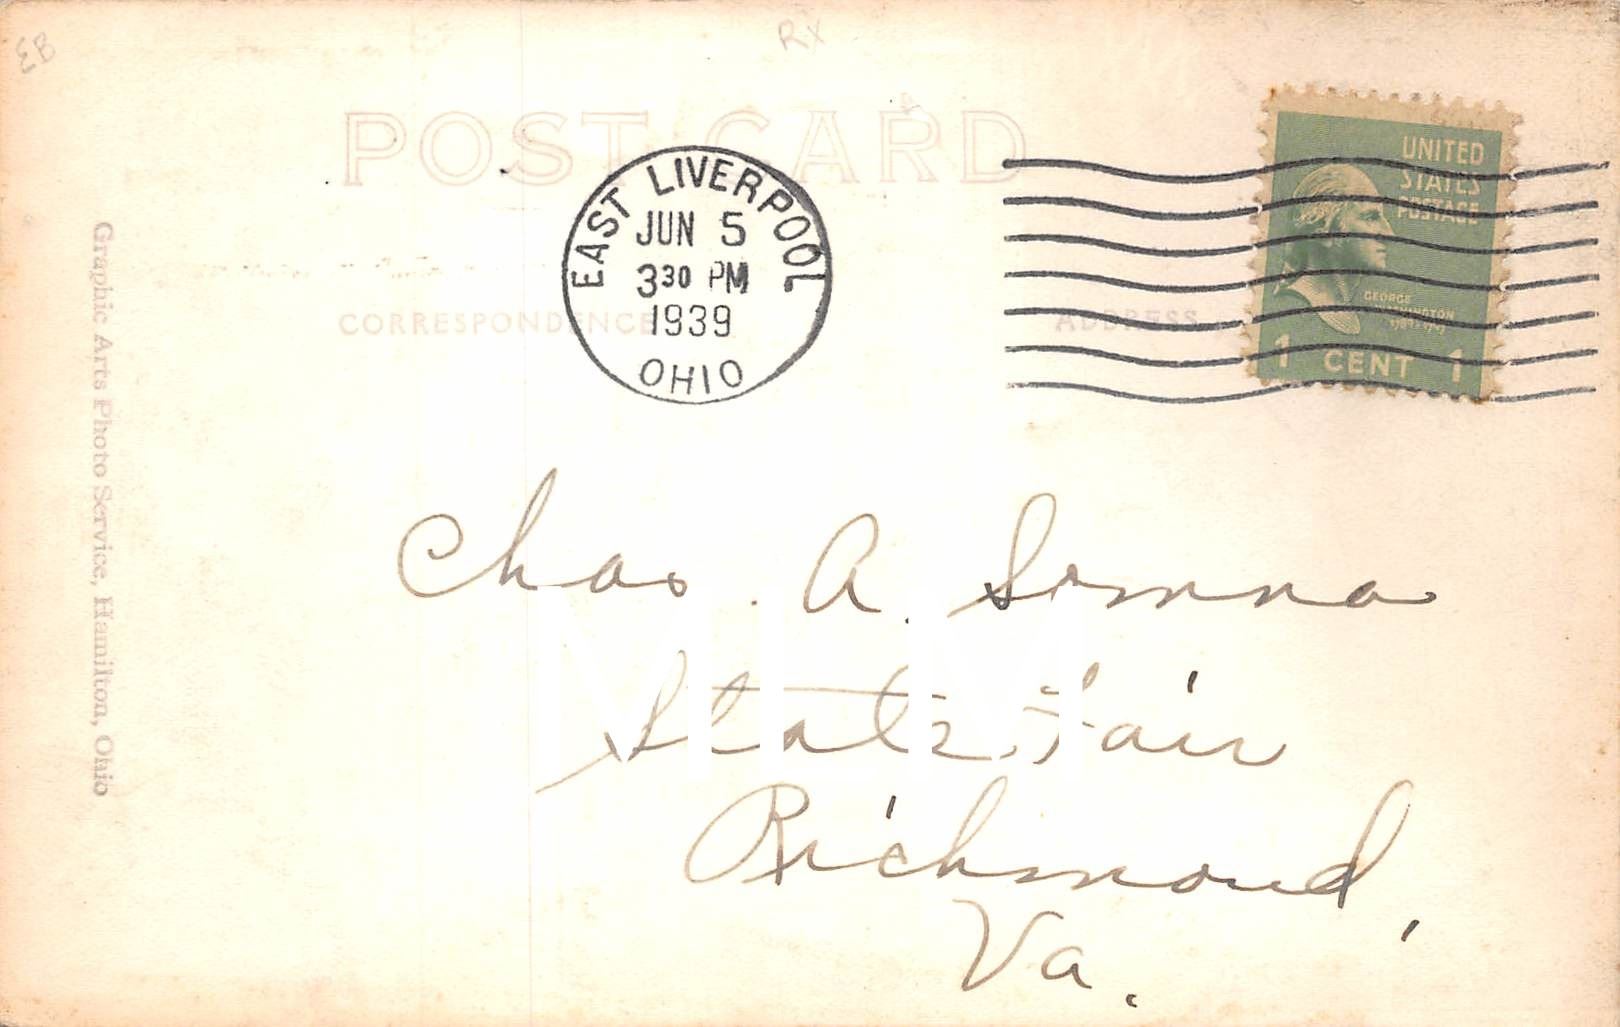 EB
Rx
POST CARD
EAST LIVERPOOL
JUN 5
3 30 PM
1939
OHIO
UNITED
STATES
POSTAGE
GEORGE
WASHINGTON
1 CENT 1
CORRESPONDENCE
ADDRESS
Graphic Arts Photo Service, Hamilton, Ohio
Chas. A.
State Fair
Richmond,
Va.
MLM